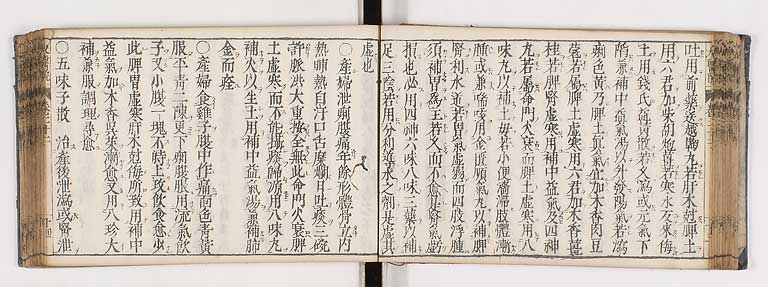 吐用前藥送越鞠丸若肝木尅脾土
用六君加柴胡炮薑若寒水反來侮
土用錢氏益黃散若久瀉或元氣下
陷兼補中益氣湯以升發陽氣若瀉
痢色黃乃脾土眞氣宜加木香肉豆
蔻若屬脾土虛寒用六君加木香薑
桂若脾腎虛寒用補中益氣及四神
丸若屬命門火衰而脾土虛寒用八
味丸以補土母若小便澀滯肢體漸
腫或兼喘咳用金匱腎氣丸以補脾
腎利水道若胃氣虛弱而四肢浮腫
須補胃爲主若久而不愈是腎氣虧
損也必用四神六味八味三藥以補
足三陰若用分利導水之劑是虛其
虛也
○產婦泄痢腹痛年餘形體骨立內
熱晡熱自汗口舌糜爛日吐痰三碗
許脉洪大重按全無此命門火衰脾
土虛寒而不能攝痰歸源用八味丸
補火以生土用補中益氣湯兼補肺
金而痊
○產婦食雞子腹中作痛面色青黃
服平胃二陳更下痢腹脹用流氣飲
子又小腹一塊不時上攻飲食愈少
此脾胃虛寒肝木尅侮所致用補中
益氣加木香吳茱漸愈又用八珍大
補兼服調理尋愈
○五味子散 治產後泄瀉或腎泄